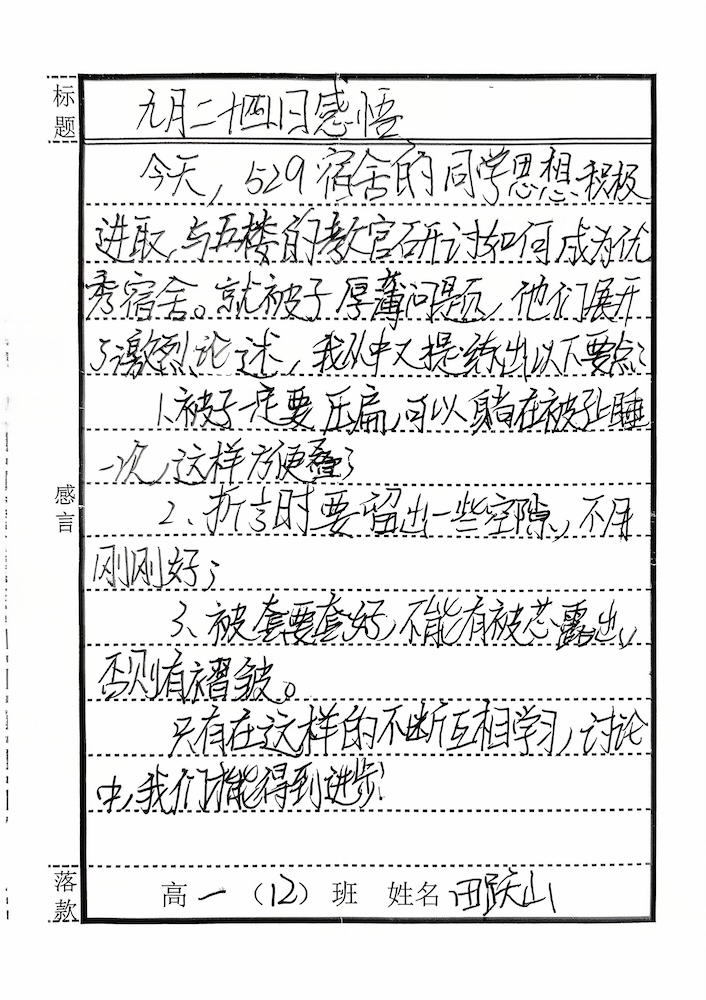 标题
九月二十四日感悟
今天，529宿舍的同学思想积极
进取，与五楼的教官研讨如何成为优
秀宿舍。就被子厚薄问题，他们展开
了激烈论述，我从中又提练出以下要点：
1、被子一定要压扁，可以躺在被子上睡
一次，这样方便叠；
感言
2、折时要留出一些空隙，不用
刚刚好；
3、被套要套好，不能有被芯露出，
否则有褶皱。
只有在这样的不断互相学习，讨论
中，我们才能得到进步！
落款
高一（12）班 姓名 田跃山